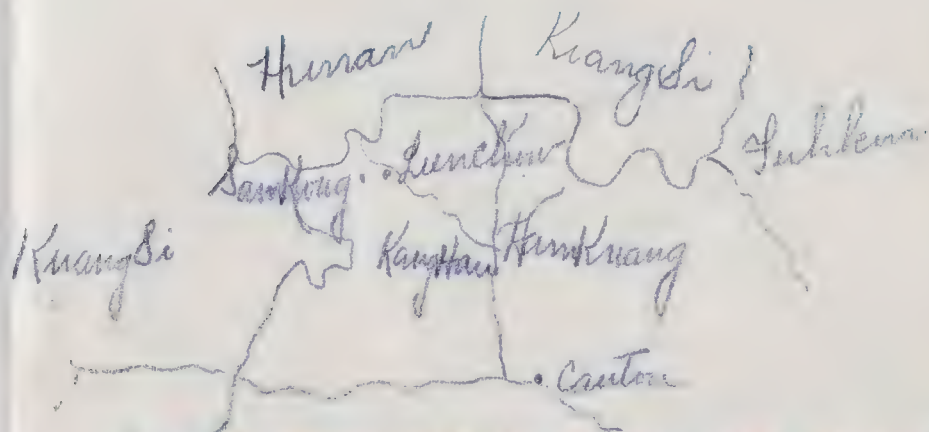 Hunan KiangSi
SamKong. Lienchow
KuangSi KangHau HamKuang
Canton